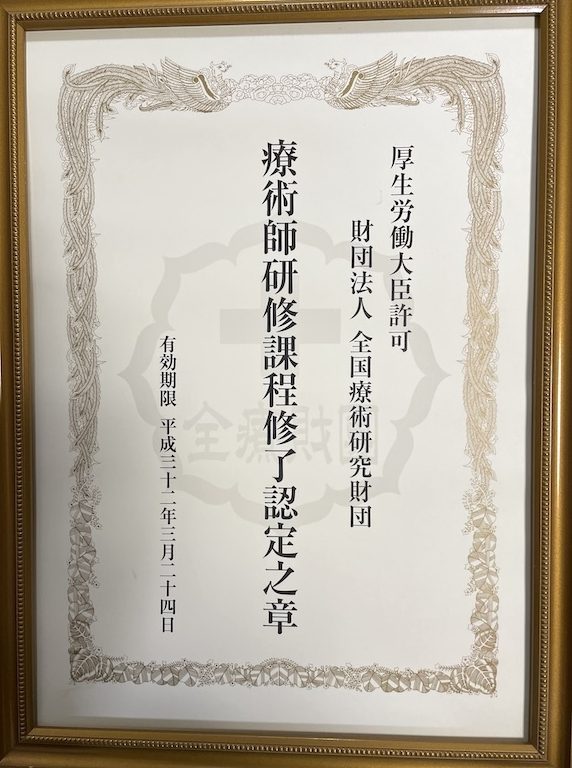 厚生労働大臣許可
財団法人 全国療術研究財団
療術師研修課程修了認定之章
有効期限 平成三十二年三月二十四日
全療財団